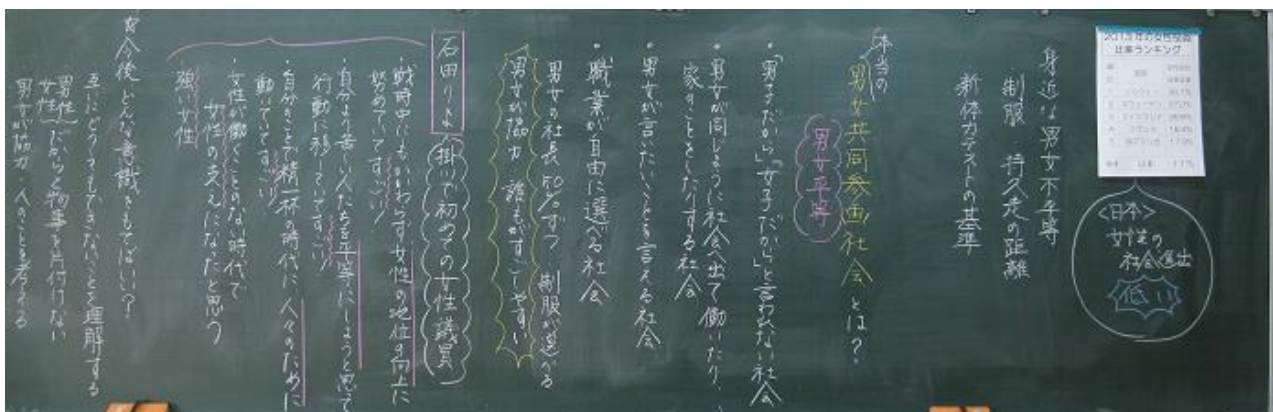 比率ランキング
日本
<日本>
女性の
社会進出
低い
身近な男女不平等
制服 持久走の距離
新体力テストの基準
本当の
男女共同参画社会とは?
男女平等
・「男子だから」「女子だから」と言われない社会
・男女が同じように社会へ出て働いたり、
家のことをしたりする社会
・男女が言いたいことを言える社会
・職業が自由に選べる社会
男女の社長50%ずつ 制服が選べる
男女が協力 誰もがすごしやすい
石田りよ
掛川で初めての女性議員
・戦時中にもかかわらず女性の地位の向上に
努めていてすごい!
・自分より苦しい人たちを平等にしようと思って
行動に移しててすごい!
・自分のことで精一杯の時代に人々のために
動いていてすごい!
・女性が働くことのない時代で
女性の支えになったと思う
強い女性
今後どんな意識をもてばいい?
互いにどうすることもできないことを理解する
男性
女性
だからと物事を片付けない
男女が協力 人のことを考える